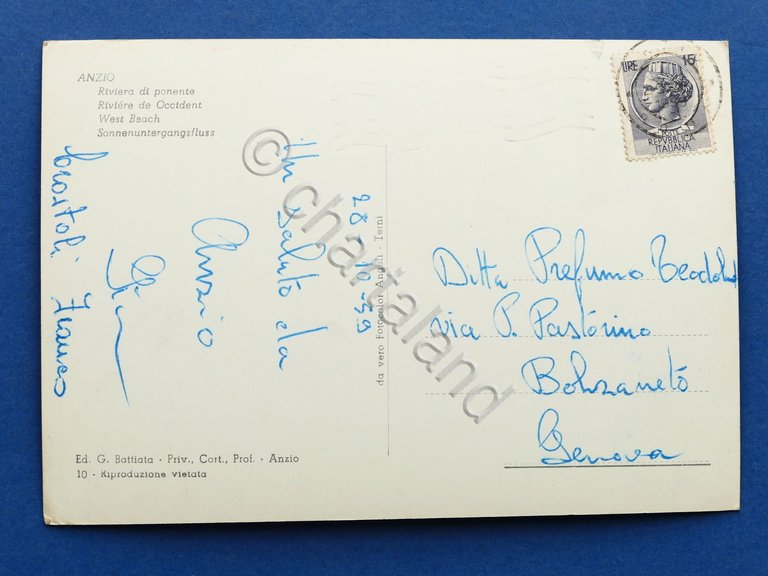 ANZIO
Riviera di ponente
Riviére de Occident
West Beach
Sonnenuntergangsfluss
LIRE 15
REPVBBLICA
ITALIANA
28-10-59
Un saluto da
Anzio
Franco
da vero Fotocolor Angeli - Terni
Ditta Prefumo
via P. Pastorino
Bolzaneto
Genova
Ed. G. Battiata - Priv., Cart., Prof. - Anzio
10 - Riproduzione vietata
© chartaland